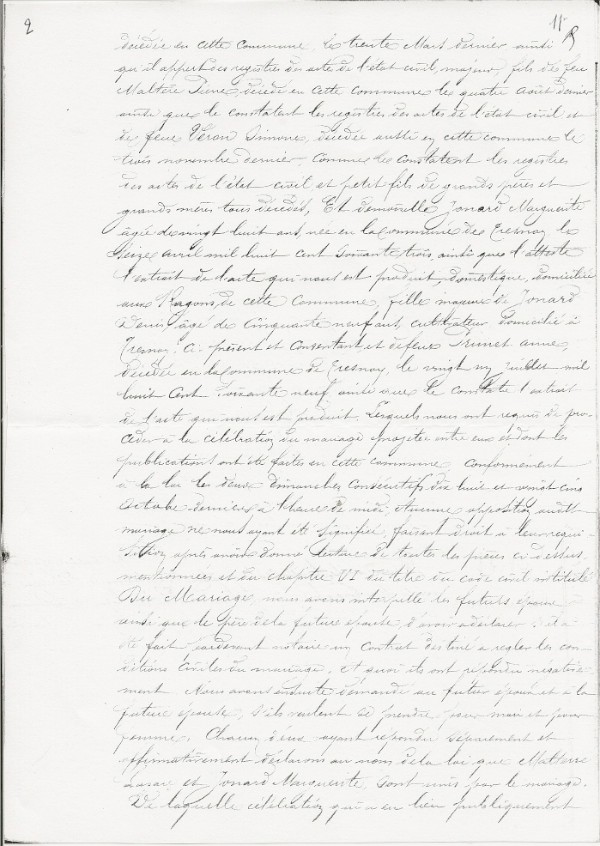 2
11
décédée en cette commune, le trente Mars dernier ainsi
qu'il appert des registres des acte de l'état civil, majeur, fils de feu
Maltère Pierre, décédé en cette commune le quatre Août dernier
ainsi que le constatent les registres des actes de l'état civil et
de feue Veran Simone, décédée aussi en cette commune le
trois novembre dernier. Comme le constatent les registres
des actes de l'état civil et petit fils de grands pères et
grands mères tous décédés, Et demoiselle Jonard Marguerite
âgée de vingt huit ans, née en la commune de Tresnay le
seize avril mil huit cent soixante trois, ainsi que l'atteste
l'extrait de l'acte qui nous est produit, domestique, domiciliée
aux de cette Commune, fille majeure de Jonard
Denis, âgé de Cinquante neuf ans, cultivateur, domicilié à
Tresnay. Ci-présent et consentant, et de feue Brunet anne,
décédée en la commune de Tresnay, le vingt un juillet mil
huit Cent soixante neuf ainsi que le constate l'extrait
de l'acte qui nous est produit. Lesquels nous ont requis de pro-
céder à la célébration du mariage projeté entre eux et dont les
publications ont été faites en cette commune, conformément
à la loi les deux dimanches consécutifs dix huit et vingt cinq
octobre derniers à l'heure de midi, Aucune opposition audit
mariage ne nous ayant été signifiée, faisant droit à leur réqui-
sition, après avoir donné lecture de toutes les pièces ci-dessus
mentionnées et du chapitre VI du titre du code civil intitulé
Du Mariage, nous avons interpellé les futurs époux
ainsi que le père de la future épouse, d'avoir à déclarer s'il a
été fait pardevant notaire un Contrat destiné à régler les con-
ditions civiles du mariage. A quoi ils ont répondu négative-
ment. Nous avons ensuite demandé au futur époux et à la
future épouse, s'ils veulent se prendre, pour mari et pour
femme. Chacun d'eux ayant répondu séparément et
affirmativement déclarons au nom de la loi, que Maltère
Lazare et Jonard Marguerite, sont unis par le mariage.
De laquelle célébration qui a eu lieu publiquement